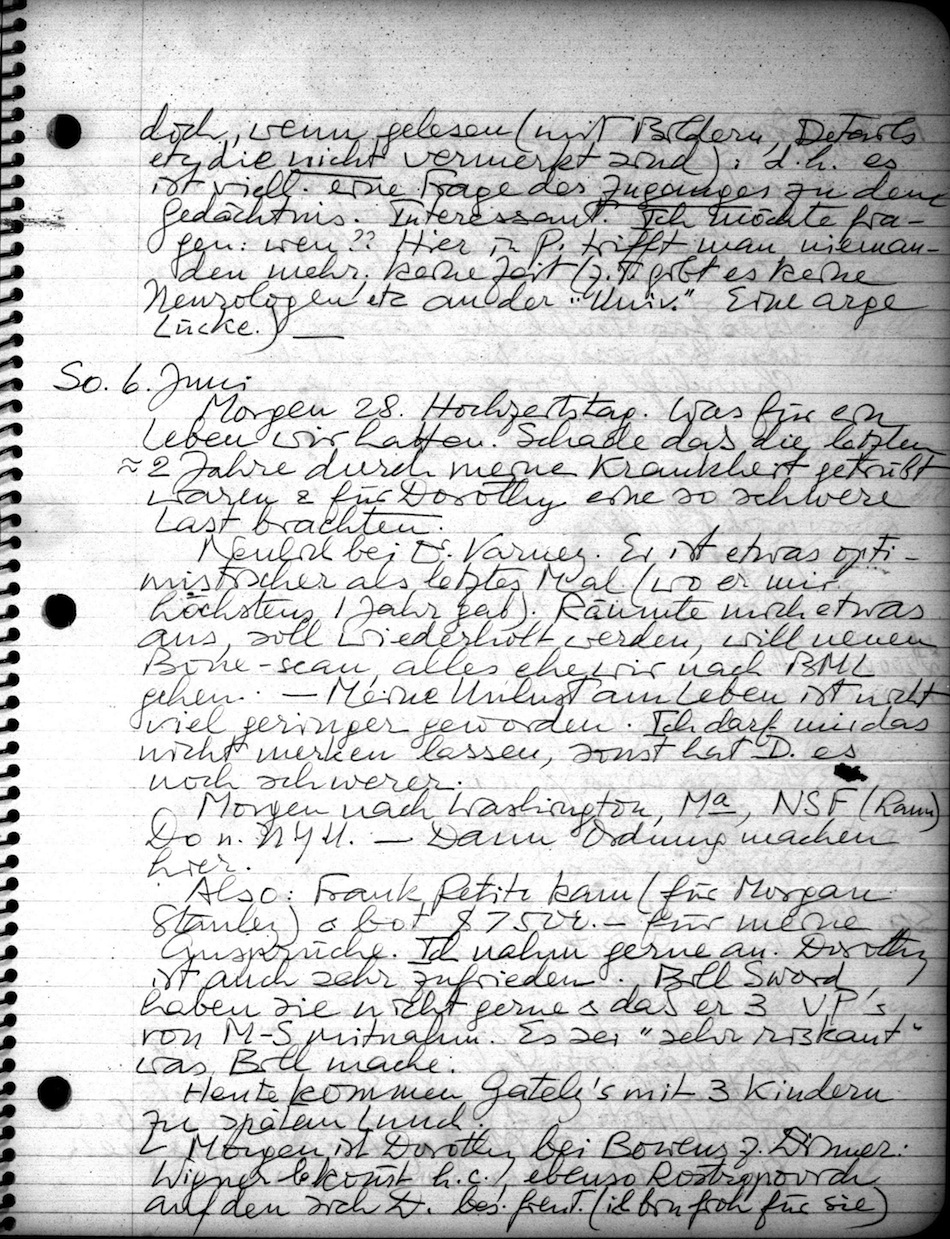 doch, wenn gelesen (mit Bildern, Details
etc, die nicht vermerkt sind): d.h. es
ist viell. eine Frage des Zuganges zu dem
Gedächtnis. Interessant. Ich möchte fra-
gen: wen?? Hier in P. trifft man nieman-
den mehr, keine Zeit (z.T. gibt es keine
Neurologen etc an der "Univ." Eine arge
Lücke.) —
So. 6. Juni
Morgen 28. Hochzeitstag. Was für ein
Leben wir hatten. Schade das die letzten
≈ 2 Jahre durch meine Krankheit getrübt
waren & für Dorothy eine so schwere
Last brachten.
Neulich bei Dr. Varney. Er ist etwas opti-
mistischer als letztes Mal (wo er mir
höchstens 1 Jahr gab). Räumte mich etwas
aus, soll wiederholt werden, will neuen
Bone-scan, alles ehe wir nach BML
gehen. — Meine Unlust am Leben ist nicht
viel geringer geworden. Ich darf mir das
nicht merken lassen, sonst hat D. es
noch schwerer.
Morgen nach Washington, NSF
Do n. NYU. — Dann Ordnung machen
hier.
Also: Frank Petito kam (für Morgan
Stanley) & bot für meine
Ansprüche. Ich nahm gerne an. Dorothy
ist auch sehr zufrieden. Bill Sword
haben sie nicht gerne & das er 3 VP's
von M-S mitnahm. Es sei "sehr riskant"
was Bill mache.
Heute kommen Gately's mit 3 Kindern
zu spätem Lunch.
Morgen ist Dorothy bei Bowens z. Dinner:
Wigner bekomt h.c., ebenso Rostropovich
auf den sich D. bes. freut. (ich bin froh für sie)